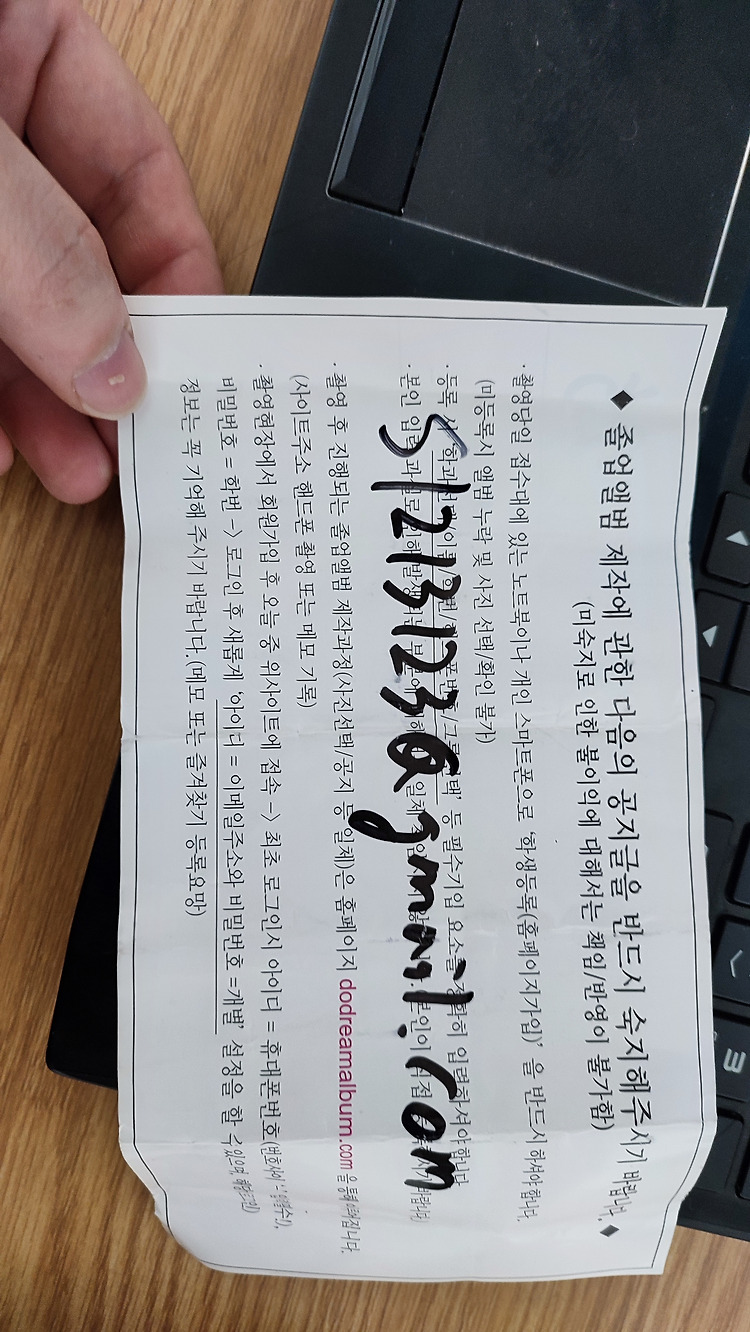 ◆ 졸업앨범 제작에 관한 다음의 공지글을 반드시 숙지해주시기 바랍니다. ◆
(미숙지로 인한 불이익에 대해서는 책임/반영이 불가함)
· 촬영당일 접수대에 있는 노트북이나 개인 스마트폰으로 '학생등록(홈페이지가입)' 을 반드시 하셔야합니다.
(미등록시 앨범 누락 및 사진 선택/확인 불가)
· 등록 시 '학과 /이름/학번/ 폰번호/그룹 택' 등 필수기입 요소를 정확히 입력하셔야합니다
· 본인 입력 과실로 인해 발생 는 부분에 일체 본인이 직접
51213123@gmail.com
· 촬영 후 진행되는 졸업앨범 제작과정(사진선택/공지 등 일체)은 홈페이지 dodreamalbum.com 을 통해 이뤄집니다.
(사이트주소 핸드폰 촬영 또는 메모 기록)
· 촬영현장에서 회원가입 후 오늘 중 위사이트에 접속 -> 최초 로그인시 아이디 = 휴대폰번호
비밀번호 = 학번 -> 로그인 후 새롭게 '아이디 = 이메일주소와 비밀번호 =개별' 설정을 할 수있으며,
정보는 꼭 기억해 주시기 바랍니다.(메모 또는 즐겨찾기 등록요망)
ㅌ